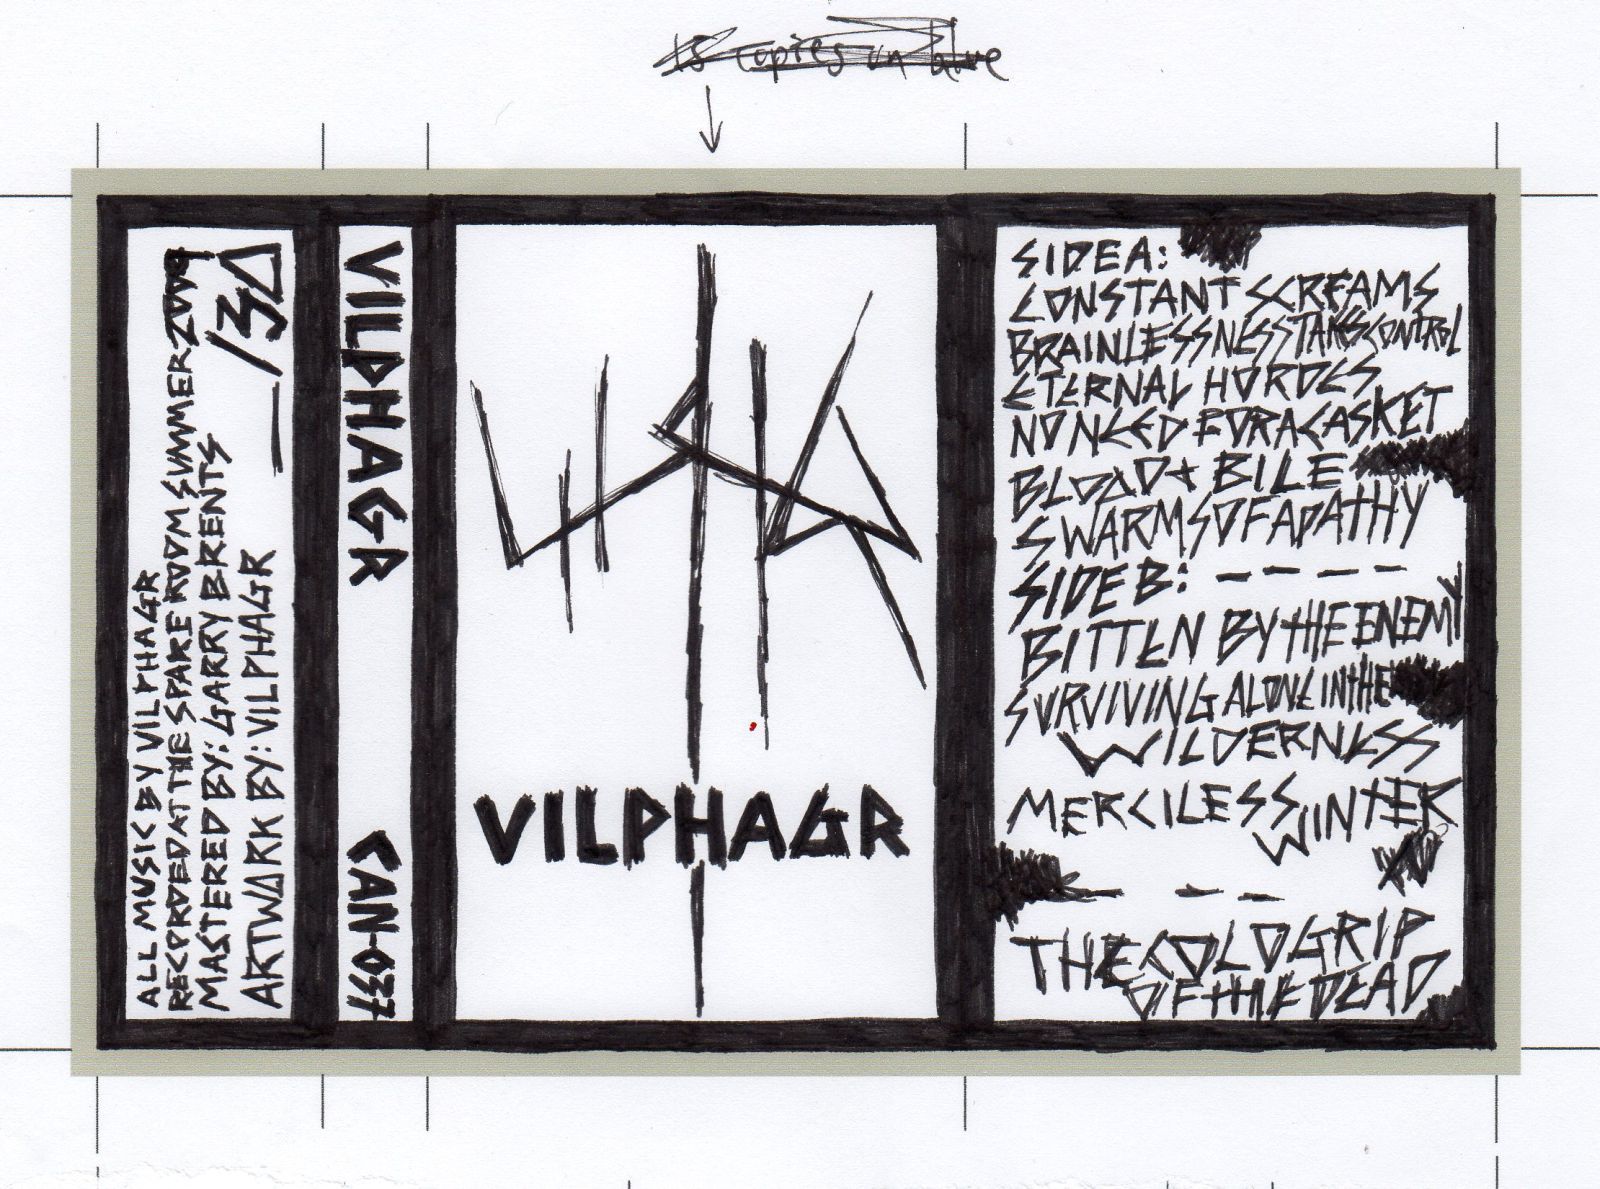 15 copies on blue
ALL MUSIC BY VILPHAGR
RECPRDED AT THE SPARE ROOM SUMMER 2009
MASTERED BY: GARRY BRENTS
ARTWARK BY: VILPHAGR
__/30
VILPHAGR
CAN-037
VILPHAGR
SIDE A:
CONSTANT SCREAMS
BRAINLESSNESS TAKES CONTROL
ETERNAL HORDES
NO NEED FOR A CASKET
BLOOD + BILE
SWARMS OF APATHY
SIDE B: ----
BITTEN BY THE ENEMY
SURVIVING ALONE IN THE
WILDERNESS
MERCILESS
WINTER
- - -
THE COLD GRIP
OF THE DEAD